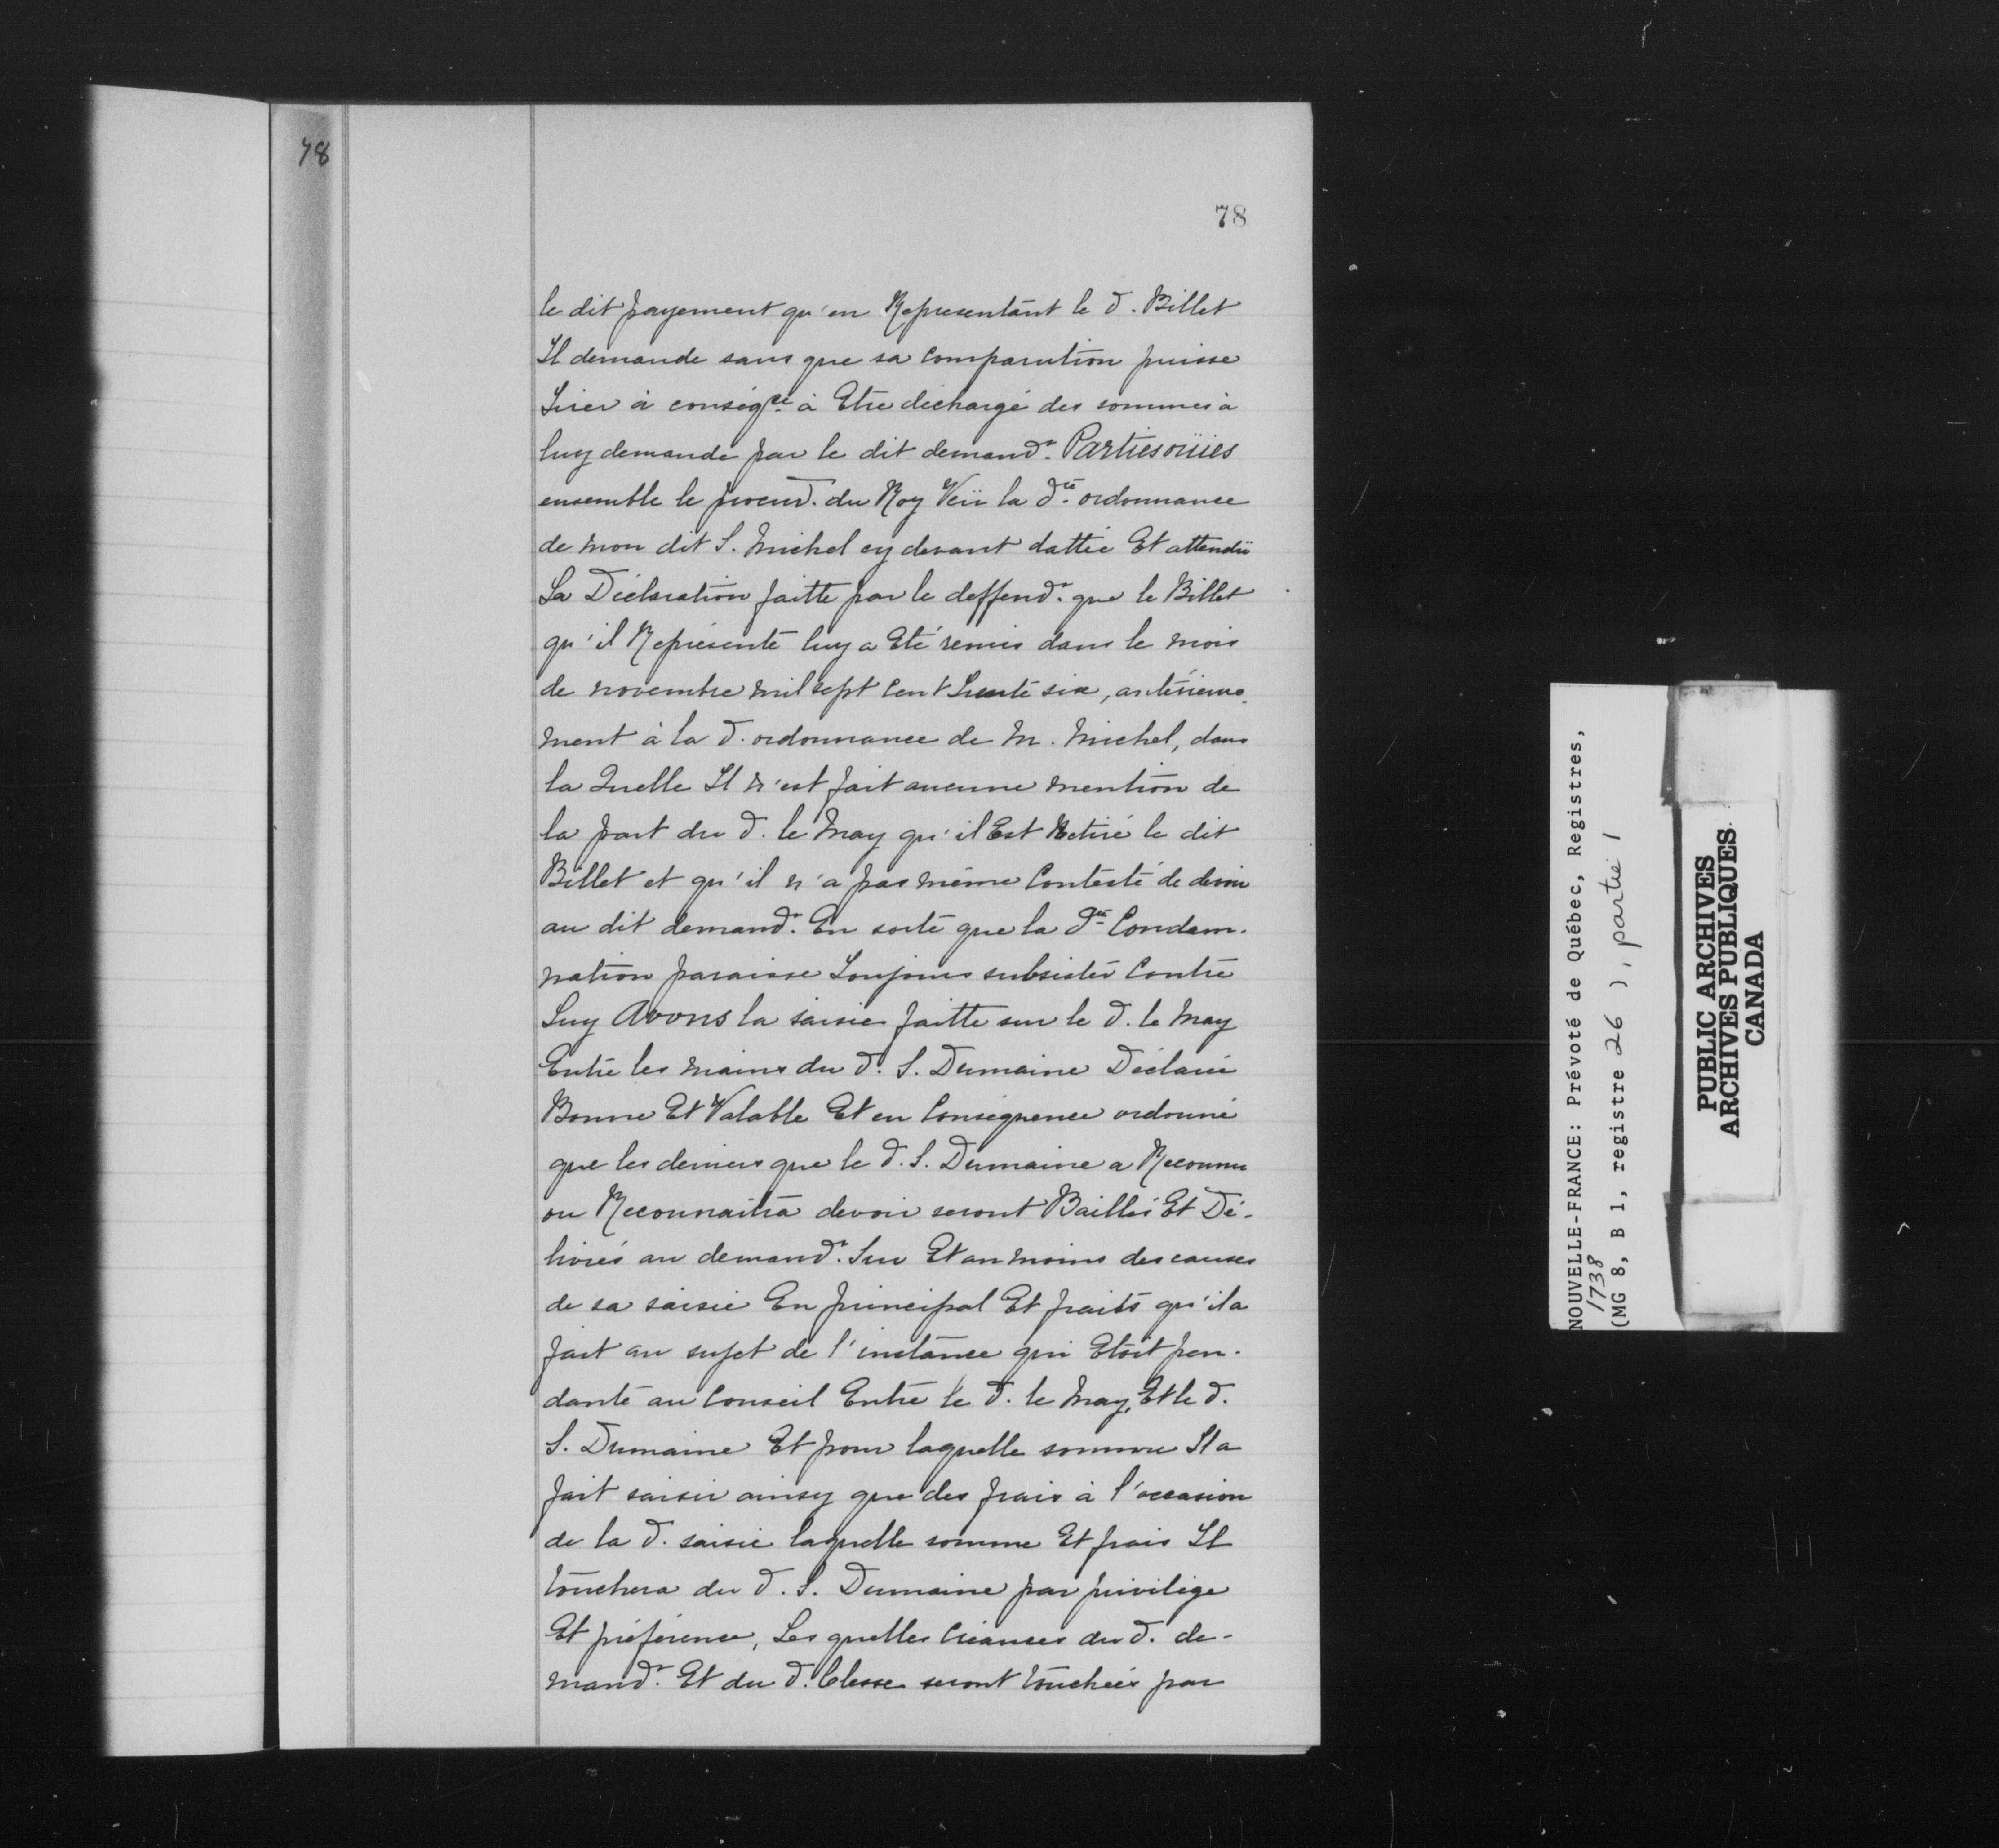 78
78
le dit payement qu'en Representant le d. Billet
Il demande sans que sa comparution puisse
tirer à conség.ce à Etre déchargé des sommes à
luy demandé par le dit demand.r Parties oüies
ensemble le procur. du Roy Veü la d.te ordonnance
de mon dit S. Michel cy devant dattée Et attendü
La Déclaration faitte par le deffend.r que le Billet
qu'il Représente luy a Eté remis dans le mois
de novembre mil sept Cent trente six, antérieure-
ment à la d. ordonnance de M. Michel, dans
la Quelle Il n'est fait aucune mention de
la part du d. le May qu'il Est Retiré le dit
Billet et qu'il n'a pas même Contesté de devoir
au dit demand.r En sorte que la d.te Condam-
nation paraisse toujours subsister Contre
Luy Avons la saisie faitte sur le d. le May
Entre les mains du d. S. Dumaine Déclarée
Bonne Et Valable Et en Conséquence ordonné
que les deniers que le d. S. Dumaine a Reconnu
ou Reconnaitra devoir seront Baillés Et Dé-
livrés au demand.r Sur Et au moins des causes
de sa saisie En principal Et fraits qu'il a
fait au sujet de l'instance qui Etoit pen-
dante au Conseil Entre le d. le May, Et le d.
S. Dumaine Et pour laquelle somme Il a
fait saisir ainsy que des frais à l'occasion
de la d. saisie laquelle somme Et frais Il
touchera du d. S. Dumaine par privilège
Et préférence, Les quelles Créances du d. de-
mand.r Et du d. Clesse seront touchées par
NOUVELLE-FRANCE: Prévoté de Québec, Registres,
1738
(MG 8, B 1, registre 26 ), partie 1
PUBLIC ARCHIVES
ARCHIVES PUBLIQUES
CANADA